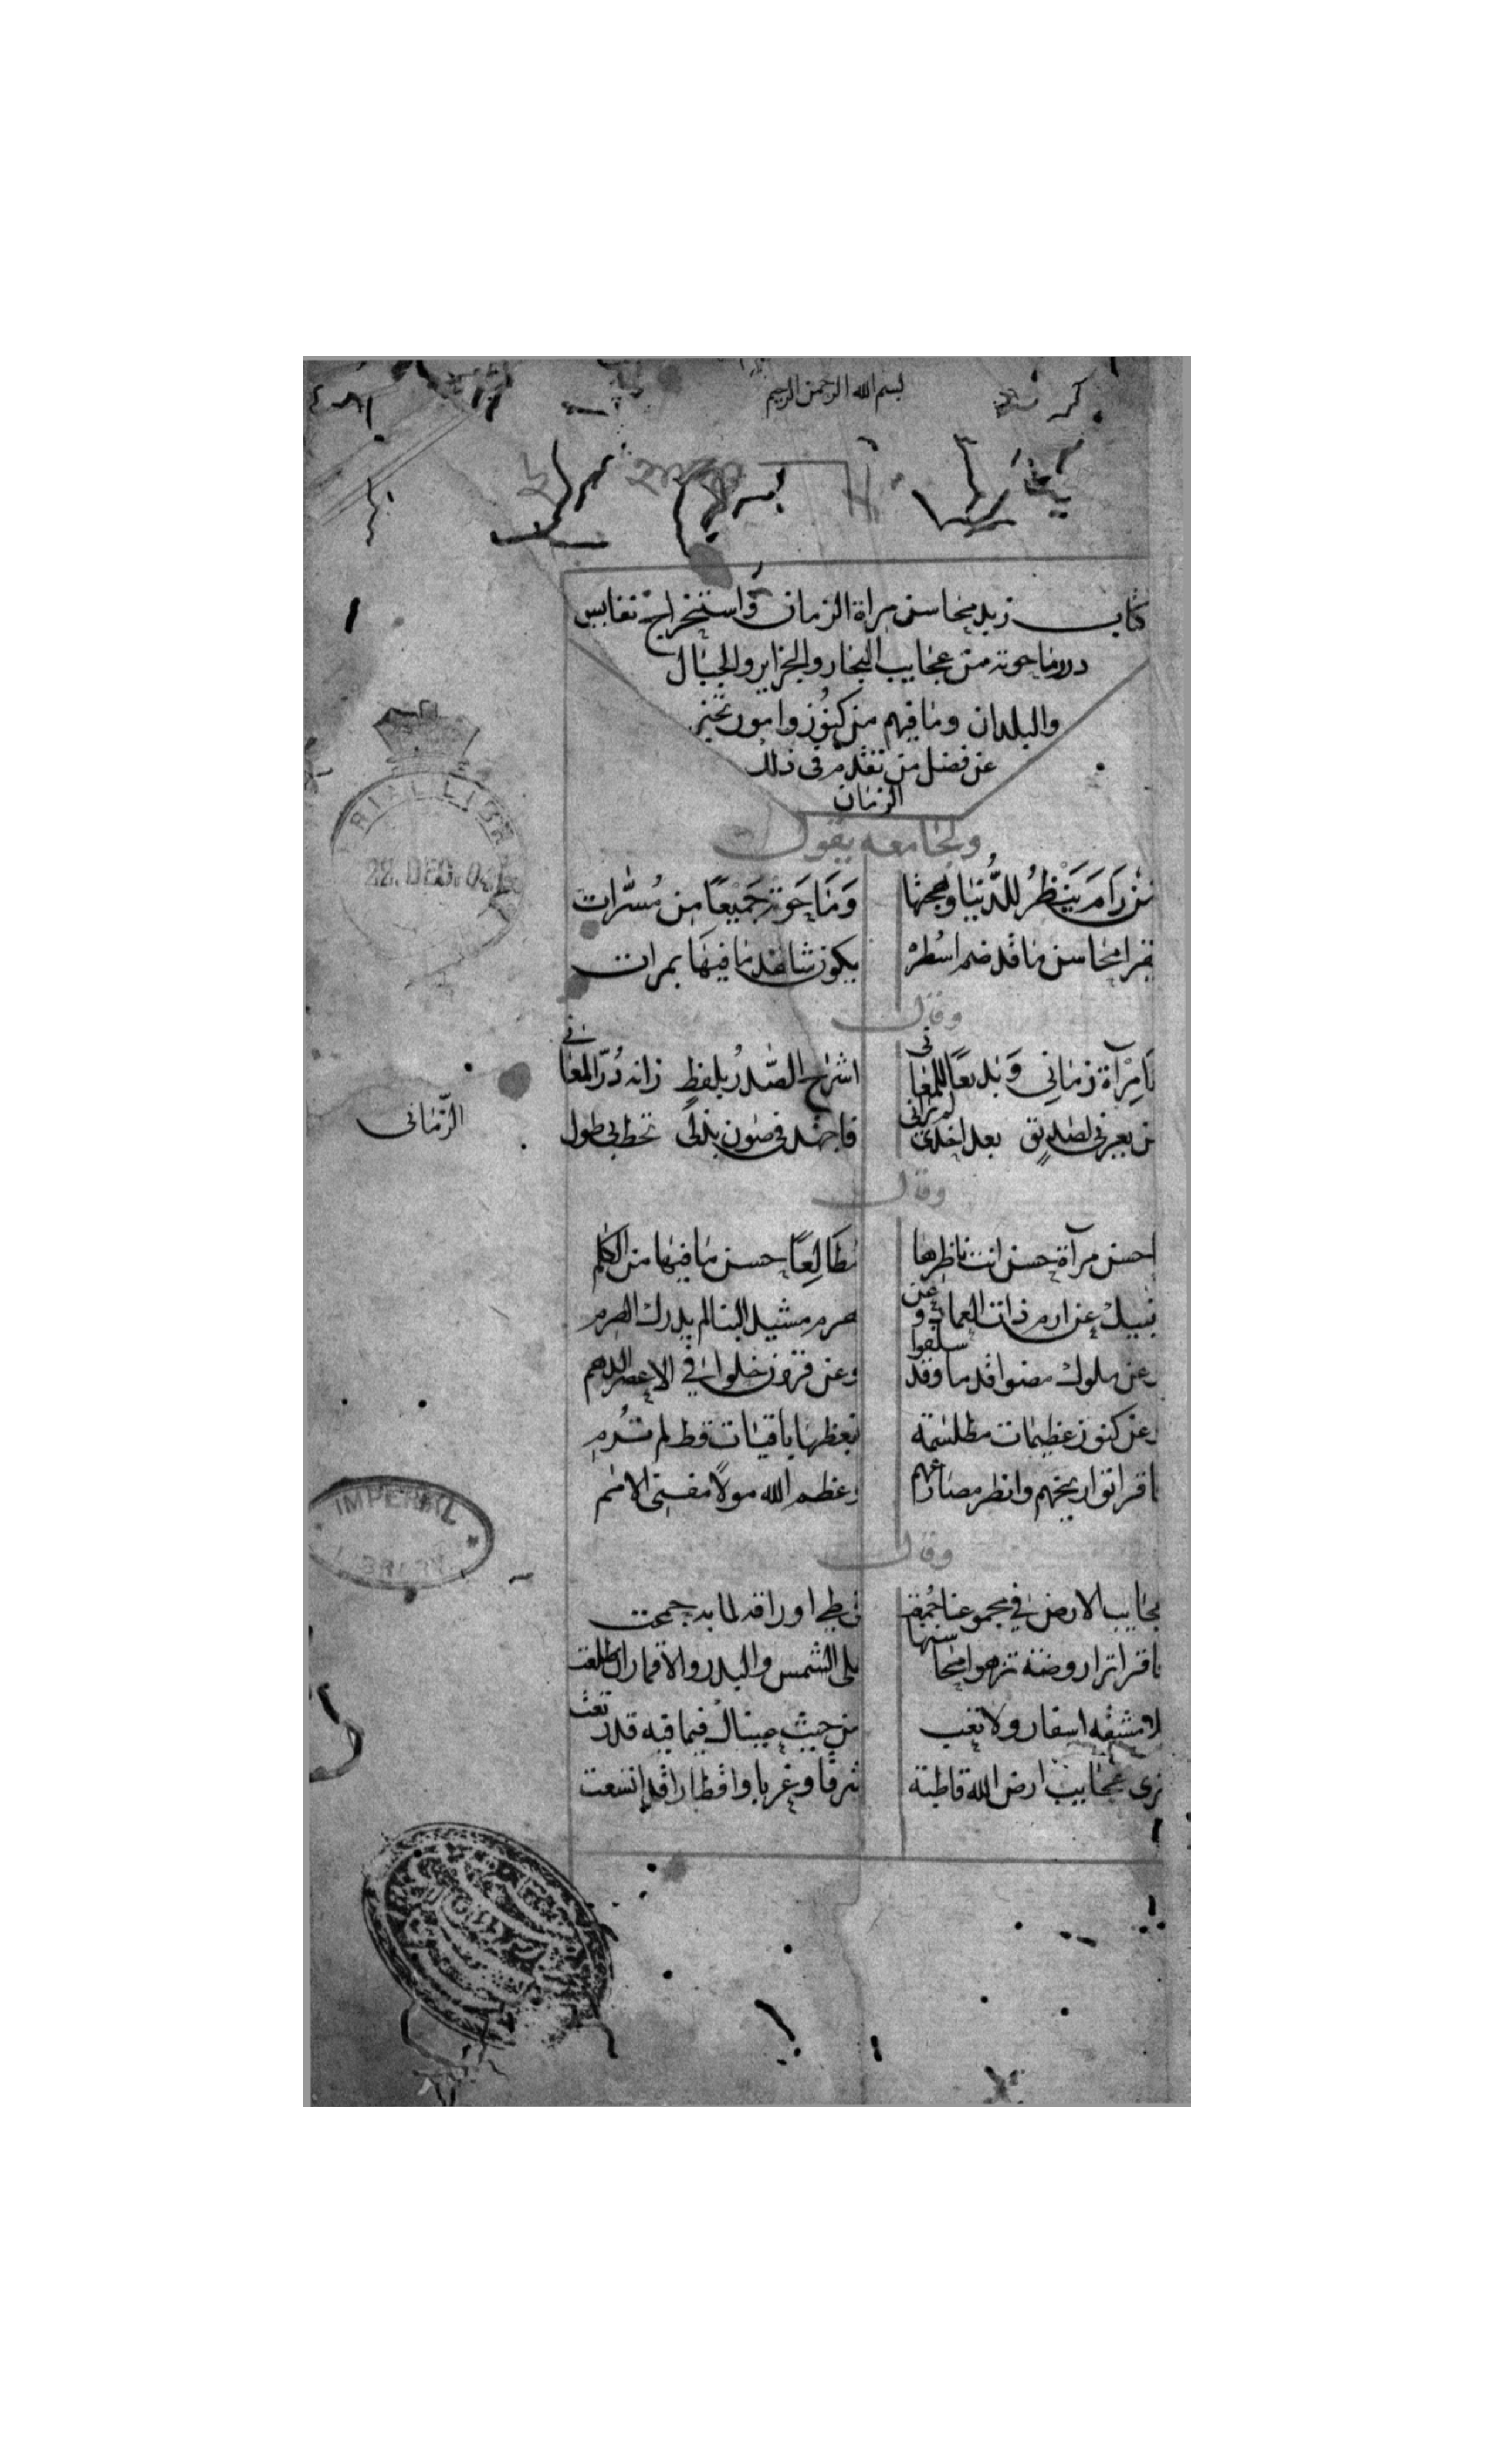 بسم الله الرحمن الرحيم
كتاب زبد محاسن مراة الزمان واستخراج نفايس
درر ما حوته من عجايب البحار والجزاير والجبال
والبلدان وما فيهم من كنوز وامور تخبر
عن فضل من تقدم فى ذلك
الزمان
ولجامعه يقول
من رَامَ يَنْظُرُ للدُّنيا وبهجتها وَمَا حَوته جَميْعًا مِن مُسَّرات
يقرا محاسن ما قد ضم اسطره يكون شاهد ما فيهَا بمرات
وقال
يَا مِرْآة زمَانِي وَبديعًا للمعَانى اشرَح الصَّدرُ بلفظٍ زانه دُرّ المعَانى
من يعيرنى لصَديْقٍ بعد اخذى لم يرانى فاجهد فى صَون بذلى تحظ بى طول
الزّمَانى
وقال
احسن مرآة حسن انت ناظرها مطَالِعًا حسن مَا فيهَا من الكلم
تنبيك عن ارم ذات العماد وعن هرم مشيد البنا لم يدرك الهرم
وعن ملوك مضوا قدما وقد سلفوا وعن قرون خلوا فى الاعصر الدهم
وعن كنوز عظيمات مطلسمة بعظهَا باقيَات قط لم ترم
فاقرا تواريخهم وانظر مصارعهم وعظم الله مولًا مفنى الامم
وقال
عجايب الارض فى مجموعنا جُمعَت فى طى اوراقه لما به جمعت
فاقرا ترا روضة تزهوا محاسنها على الشمس والبدر والاقمار ان طلعت
لا مشقه اسفار ولا تعب من حيث عينَاك فيما فيه قد رتعت
ترى عجايب ارض الله قاطبة شرقا وغربا واقطارا قد اتسعت
22. DEC. 04
IMPERIAL
LIBRARY